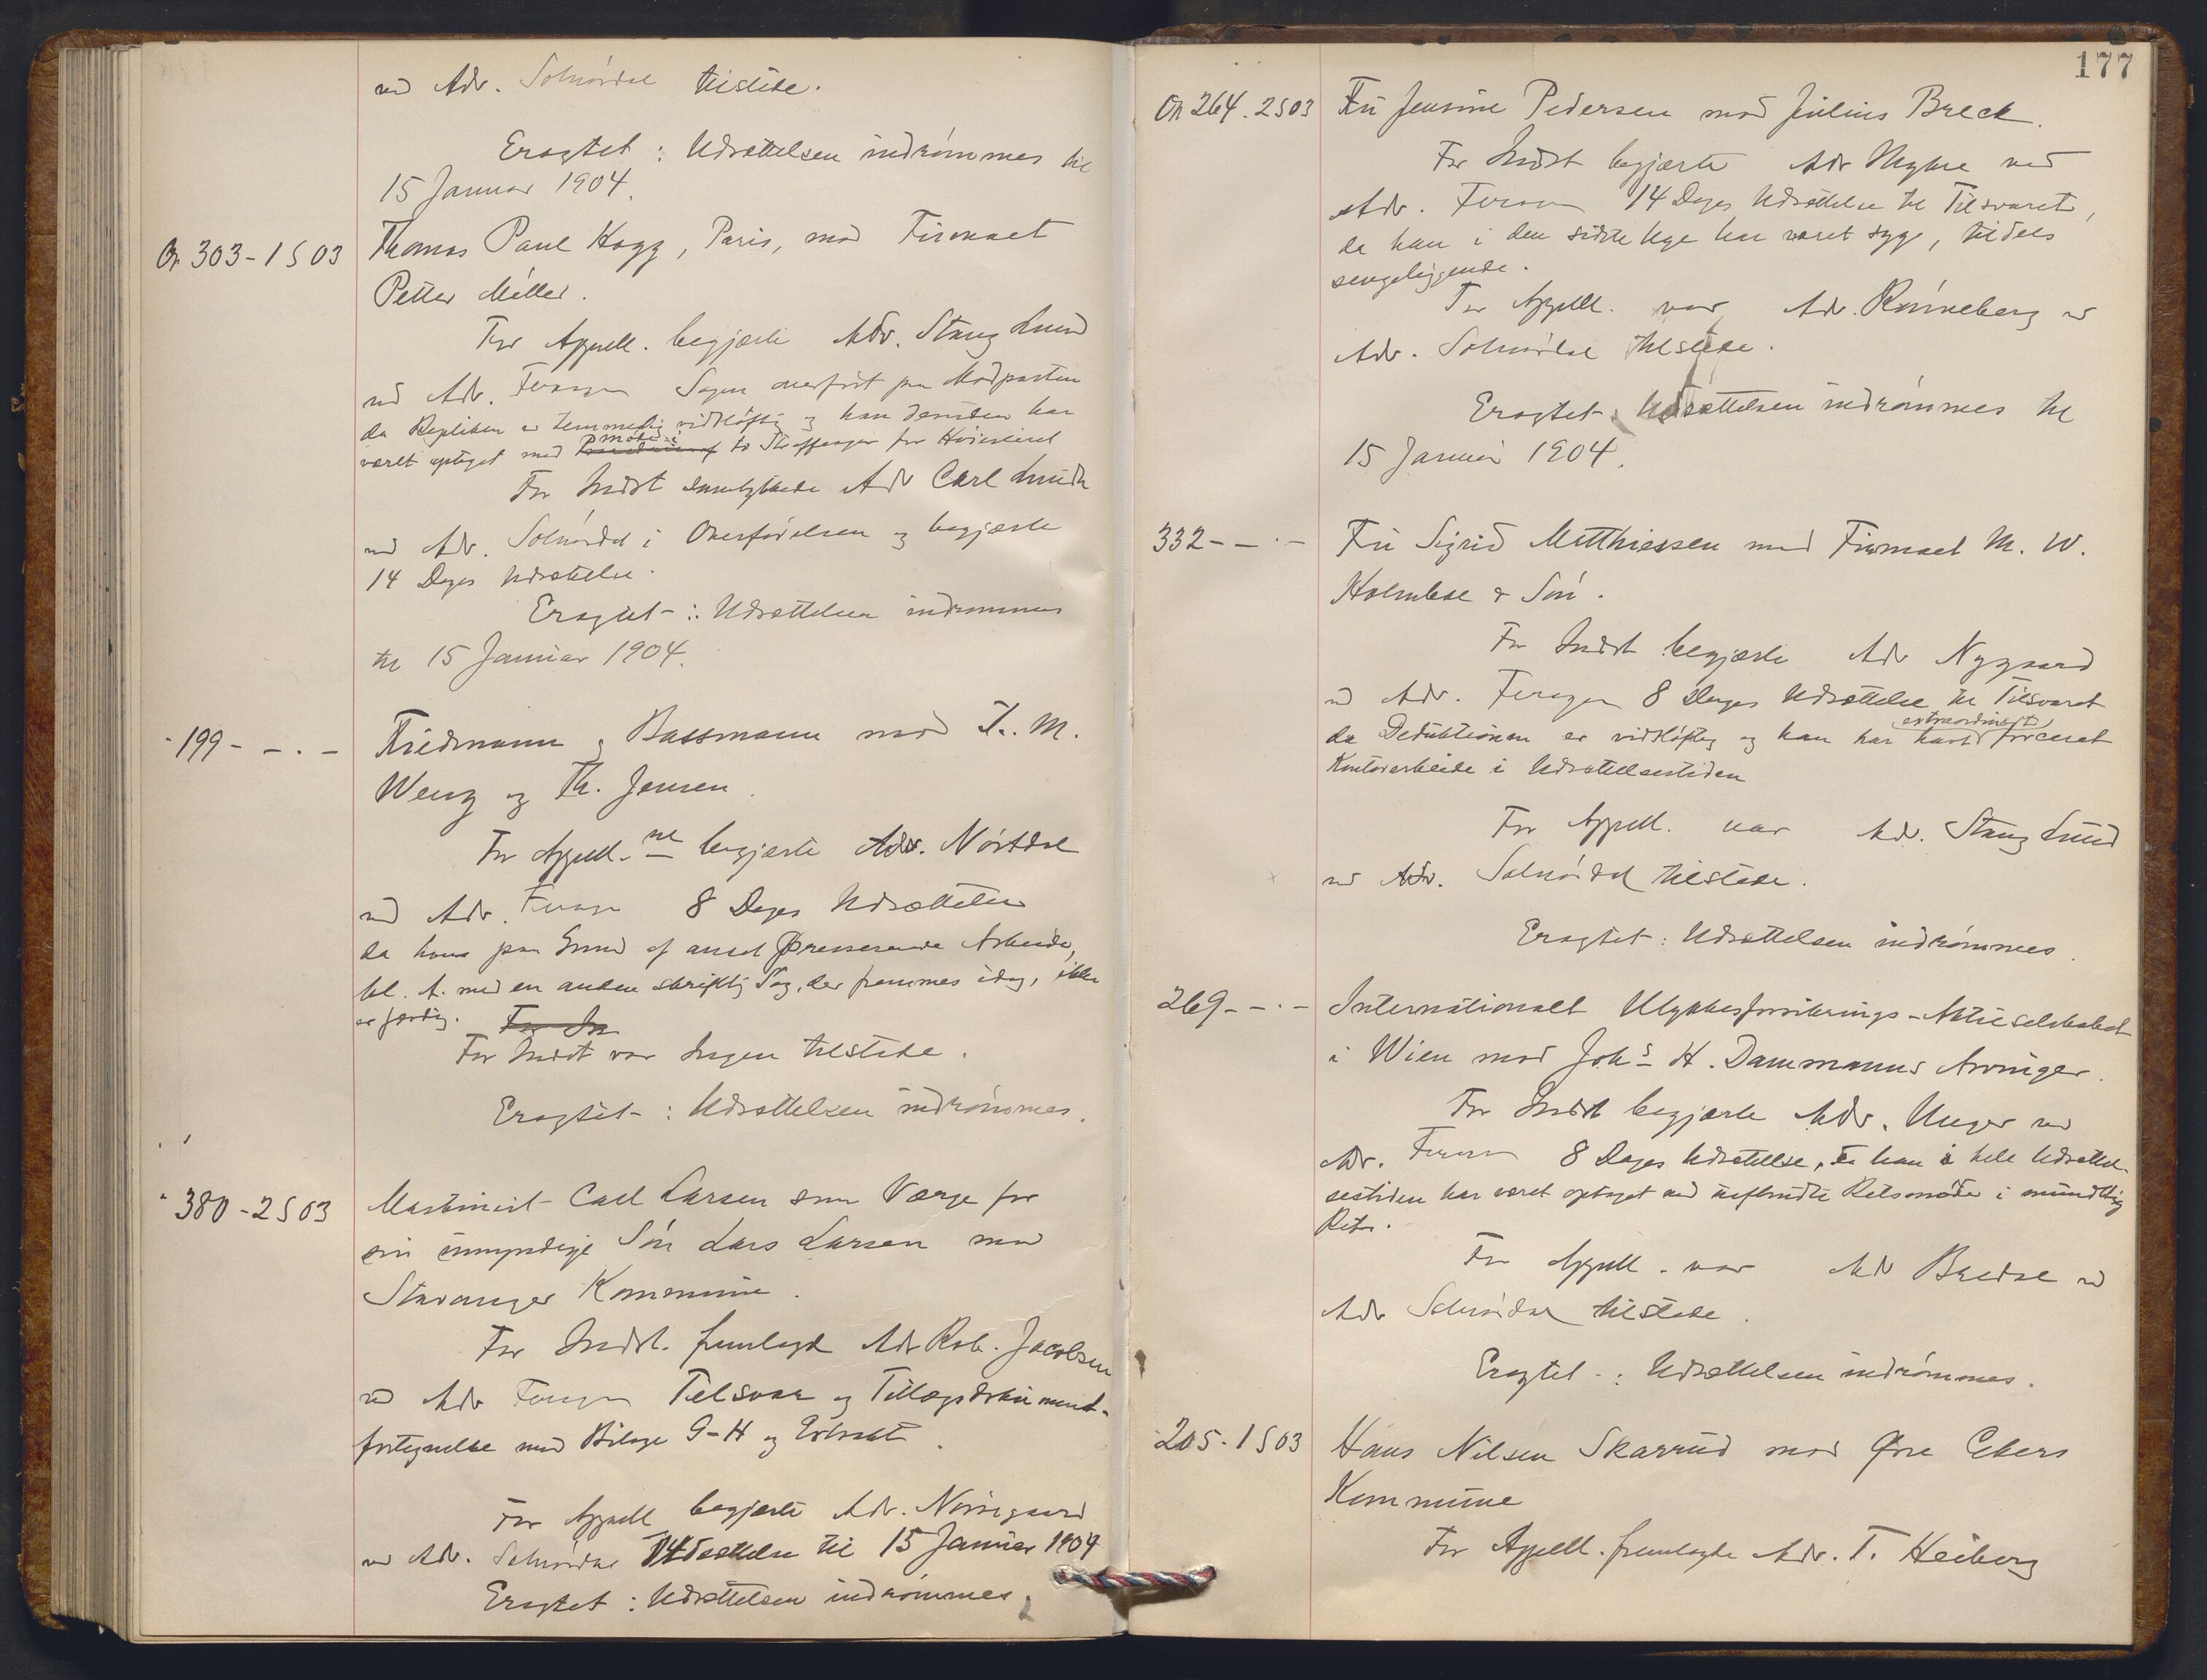 ved Adv. Solnørdal tilstede.
Eragtet: Udsættelsen indrømmes til
15 Januar 1904.
Or 303-1 S 03 Thomas Paul Hagg, Paris, mod Firmaet
Petter Møller.
For Appell. begjærte Adv. Stang Lund
ved Adv. Sagen overført paa Modparten
da Repliken er temmelig vidløftig og han desuden har
været optaget med møde i to Straffesager for Høiesteret
For Indst samtykkede Adv Carl Lundh
ved Adv. Solnørdal i Overførelsen og begjærte
14 Dages Udsættelse.
Eragtet: Udsættelsen indrømmes
til 15 Januar 1904.
199 - - . - Friedmann & Bassmann mod I. M.
Weng og Th. Jensen.
For Appell.ne begjærte Adv. Nørdal
ved Adv. 8 Dages Udsættelse
da han paa Grund af andet presserende Arbeide,
bl. A. med en anden skriftlig Sag, der fremmes idag, ikke
er færdig. For In
For Indst var Ingen tilstede.
Eragtet: Udsættelsen indrømmes.
380-2 S 03 Maskinist Carl Larsen som Værge for
sin umyndige Søn Lars Larsen mod
Stavanger Kommune.
For Indst. fremlagde Adv Rob. Jacobsen
ved Adv Tilsvar og Tillægsdokument-
fortegnelse med Bilage G-H og Extrakt.
For Appell begjærte Adv. Nørregaard
ved Adv. Solnørdal Udsættelse til 15 Januar 1904
Eragtet: Udsættelsen indrømmes.
177
Or 264. 2 S 03 Fru Jensine Pedersen mod Julius Breck.
For Indst begjærte Adv Myhre ved
Adv. 14 Dages Udsættelse til Tilsvaret,
da han i den sidste Uge har været syg, tildels
sengeliggende.
For Appell. var Adv. Rønneberg ved
Adv. Solnørdal tilstede.
Eragtet: Udsættelsen indrømmes til
15 Januar 1904.
332 - - . - Fru Sigrid Matthiessen mod Firmaet M. W.
Holmboe & Søn.
For Indst begjærte Adv Nygaard
ved Adv. 8 Dages Udsættelse til Tilsvaret
da Deduktionen er vidløftig og han har havt extraordinært forceret
Kontorarbeide i Udsættelsestiden
For Appell. var Adv. Stang Lund
ved Adv. Solnørdal tilstede.
Eragtet: Udsættelsen indrømmes.
269 - - . - Internationalt Ulykkesforsikrings-Aktieselskabet
i Wien mod Johs H. Dammanns Arvinger.
For Indst begjærte Adv. Unger ved
Adv. 8 Dages Udsættelse, da han i hele Udsættel-
sestiden har været optaget ved uafbrudte Retsmøder i mundtlig
Ret.
For Appell. var Adv Bredal ved
Adv Solnørdal tilstede.
Eragtet: Udsættelsen indrømmes.
205-1 S 03 Hans Nilsen Skarrud mod Øvre Ekers
Kommune
For Appell. fremlagde Adv. T. Heiberg